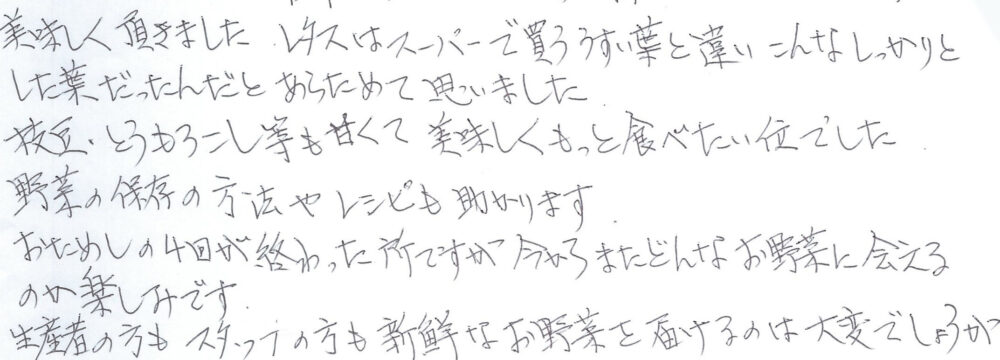 美味しく頂きました レタスはスーパーで買ううすい葉と違い こんなしっかりと
した葉だったんだと あらためて思いました
枝豆・とうもろこし等も甘くて 美味しくもっと食べたい位でした
野菜の保存の方法や レシピも 助かります
おためしの4回が終わった所ですが 今からまたどんなお野菜に会える
のか楽しみです
生産者の方も スタッフの方も 新鮮なお野菜を届けるのは 大変でしょうが